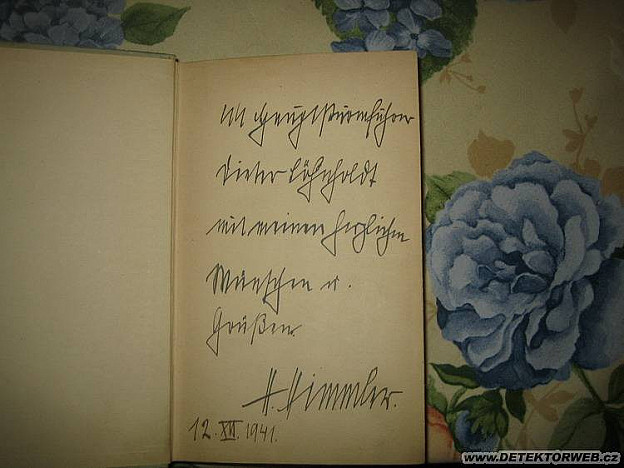 SS Hauptsturmführer
Dieter
mit meinen herzlichen
Wünschen u.
Grüßen
H. Himmler.
12. XII. 1941.
www.DETEKTORWEB.cz